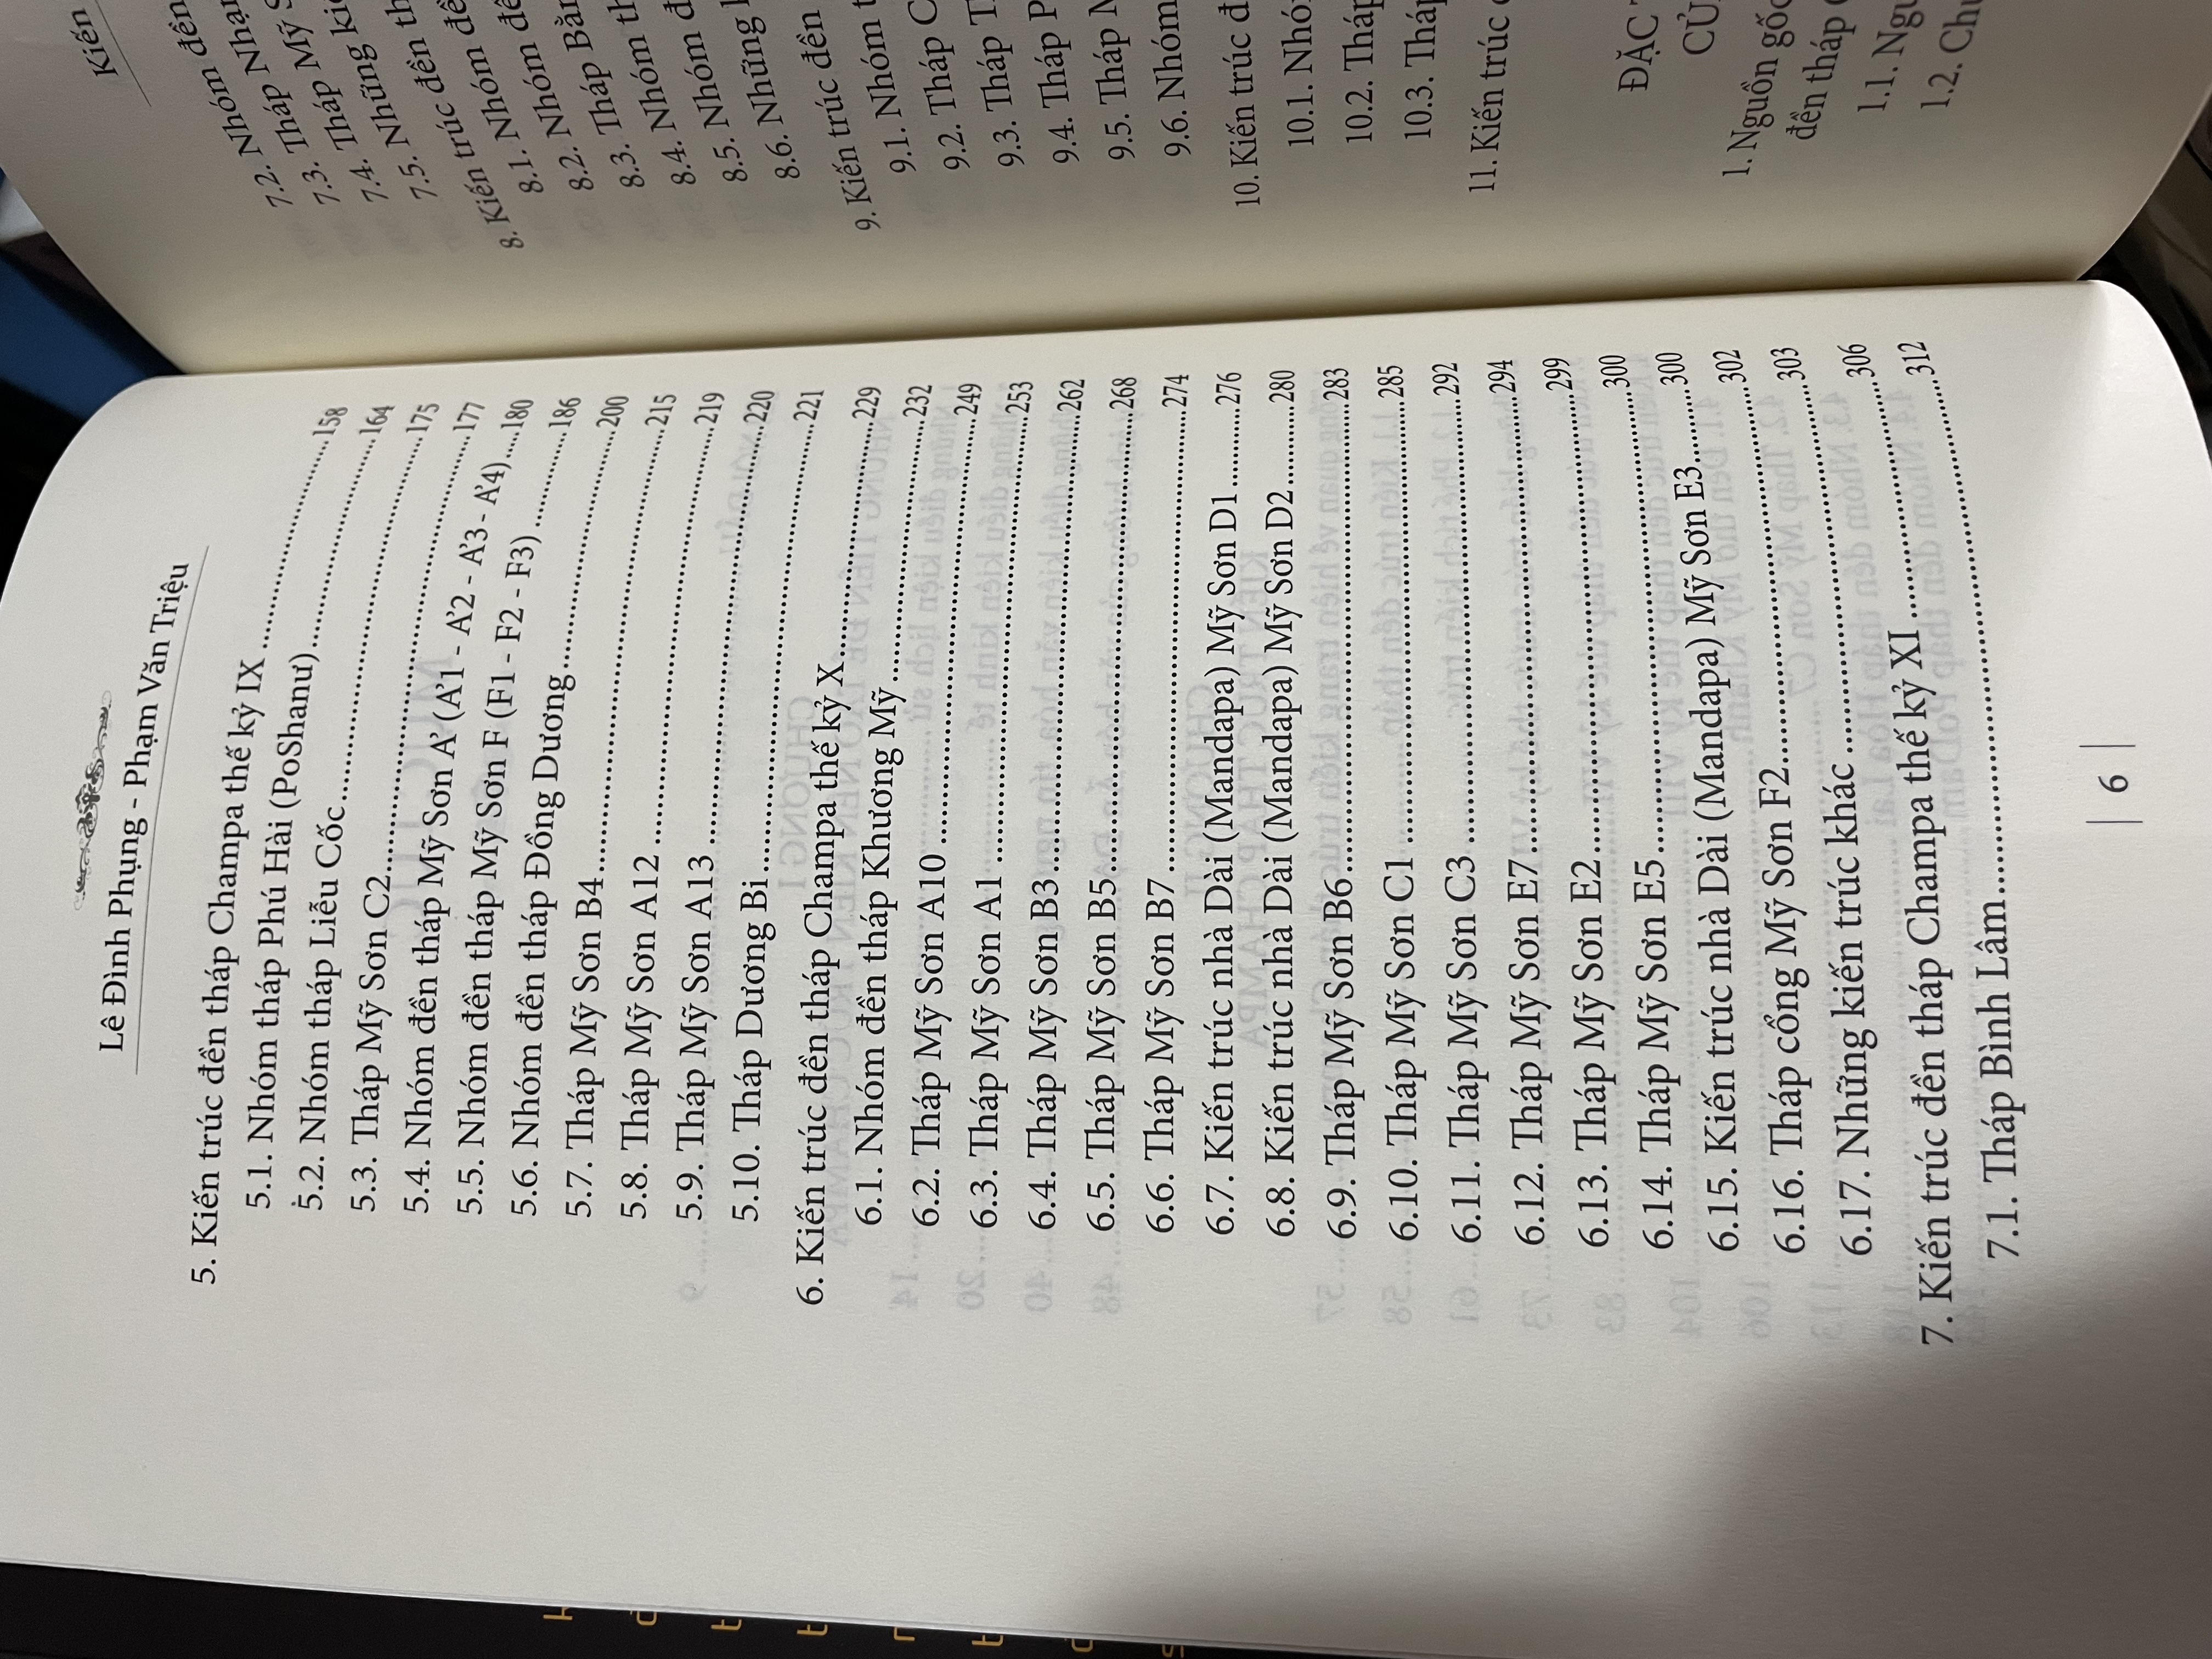 Lê Đình Phụng - Phạm Văn Triệu
5. Kiến trúc đền tháp Champa thế kỷ IX ..........158
5.1. Nhóm tháp Phú Hài (PoShanư)..........164
5.2. Nhóm tháp Liễu Cốc..........175
5.3. Tháp Mỹ Sơn C2..........177
5.4. Nhóm đền tháp Mỹ Sơn A' (A'1 - A'2 - A'3 - A'4).....180
5.5. Nhóm đền tháp Mỹ Sơn F (F1 - F2 - F3)..........186
5.6. Nhóm đền tháp Đồng Dương..........200
5.7. Tháp Mỹ Sơn B4..........215
5.8. Tháp Mỹ Sơn A12 ..........219
5.9. Tháp Mỹ Sơn A13 ..........220
5.10. Tháp Dương Bi..........221
6. Kiến trúc đền tháp Champa thế kỷ X..........229
6.1. Nhóm đền tháp Khương Mỹ..........232
6.2. Tháp Mỹ Sơn A10 ..........249
6.3. Tháp Mỹ Sơn A1 ..........253
6.4. Tháp Mỹ Sơn B3..........262
6.5. Tháp Mỹ Sơn B5..........268
6.6. Tháp Mỹ Sơn B7..........274
6.7. Kiến trúc nhà Dài (Mandapa) Mỹ Sơn D1 ..........276
6.8. Kiến trúc nhà Dài (Mandapa) Mỹ Sơn D2 ..........280
6.9. Tháp Mỹ Sơn B6..........283
6.10. Tháp Mỹ Sơn C1 ..........285
6.11. Tháp Mỹ Sơn C3 ..........292
6.12. Tháp Mỹ Sơn E7..........294
6.13. Tháp Mỹ Sơn E2..........299
6.14. Tháp Mỹ Sơn E5..........300
6.15. Kiến trúc nhà Dài (Mandapa) Mỹ Sơn E3..........300
6.16. Tháp cổng Mỹ Sơn F2..........302
6.17. Những kiến trúc khác ..........303
7. Kiến trúc đền tháp Champa thế kỷ XI ..........306
7.1. Tháp Bình Lâm..........312
| 6 |
Kiến
7.2. Nhóm đền
7.3. Tháp Mỹ S
7.4. Tháp
7.5. Những kiế
8. Kiến trúc đề
8.1. Nhóm đề
8.2. Nhóm
8.3. Tháp Bằn
8.4. Nhóm
8.5. Nhóm
8.6. Những
9. Kiến trúc đền
9.1. Nhóm t
9.2. Tháp C
9.3. Tháp T
9.4. Tháp P
9.5. Tháp
9.6. Nhóm
10. Kiến trúc đ
10.1. Nhó
10.2. Tháp
10.3. Tháp
11. Kiến trúc
ĐẶC
CỦ
1. Nguồn gốc
đền tháp
1.1. Ngu
1.2. Chu